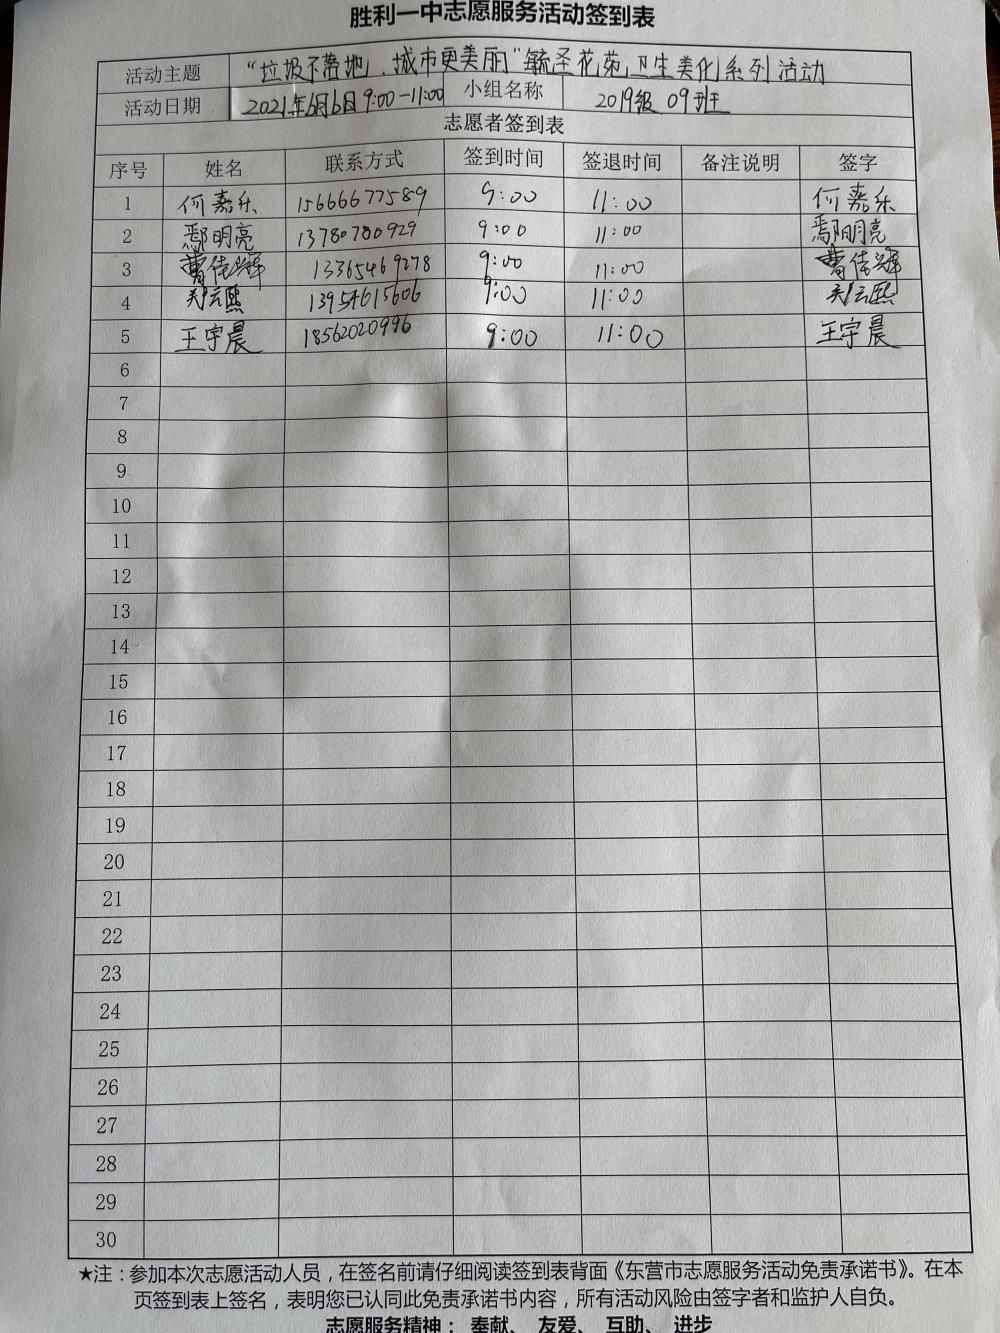 胜利一中志愿服务活动签到表
活动主题 “垃圾不落地、城市更美丽”毓圣花苑卫生美化系列活动
活动日期 2021年6月6日9:00-11:00 小组名称 2019级 09班
志愿者签到表
序号 姓名 联系方式 签到时间 签退时间 备注说明 签字
1 何嘉乐 15666677589 9:00 11:00 何嘉乐
2 鄢明亮 13780780929 9:00 11:00 鄢明亮
3 曹佳辉 13365469278 9:00 11:00 曹佳辉
4 云熙 13954615606 9:00 11:00 云熙
5 王宇晨 18562020996 9:00 11:00 王宇晨
6
7
8
9
10
11
12
13
14
15
16
17
18
19
20
21
22
23
24
25
26
27
28
29
30
★注：参加本次志愿活动人员，在签名前请仔细阅读签到表背面《东营市志愿服务活动免责承诺书》。在本
页签到表上签名，表明您已认同此免责承诺书内容，所有活动风险由签字者和监护人自负。
志愿服务精神： 奉献、 友爱、 互助、 进步